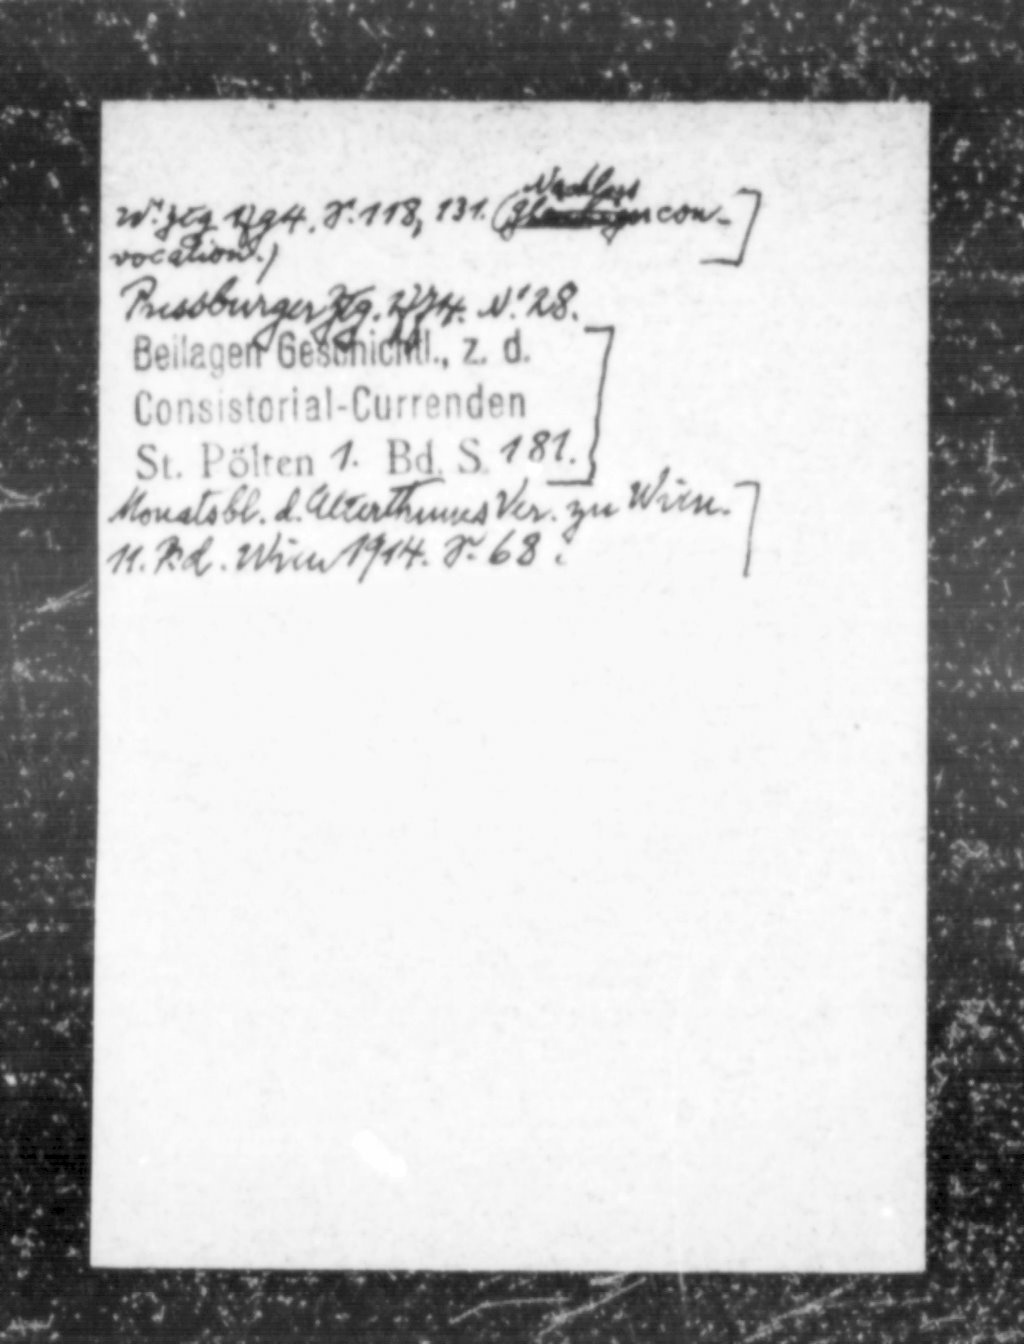 Nachlass
Wr. Ztg. 1794. S. 118, 131. (Gläubigercon-
vocation.)
Pressburger Ztg. 1774. Nr. 28.
Beilagen Geschichtl., z. d.
Consistorial-Currenden
St. Pölten 1. Bd. S. 181.
Monatsbl. d. Alterthums Ver. zu Wien.
11. Bd. Wien 1914. S. 68.